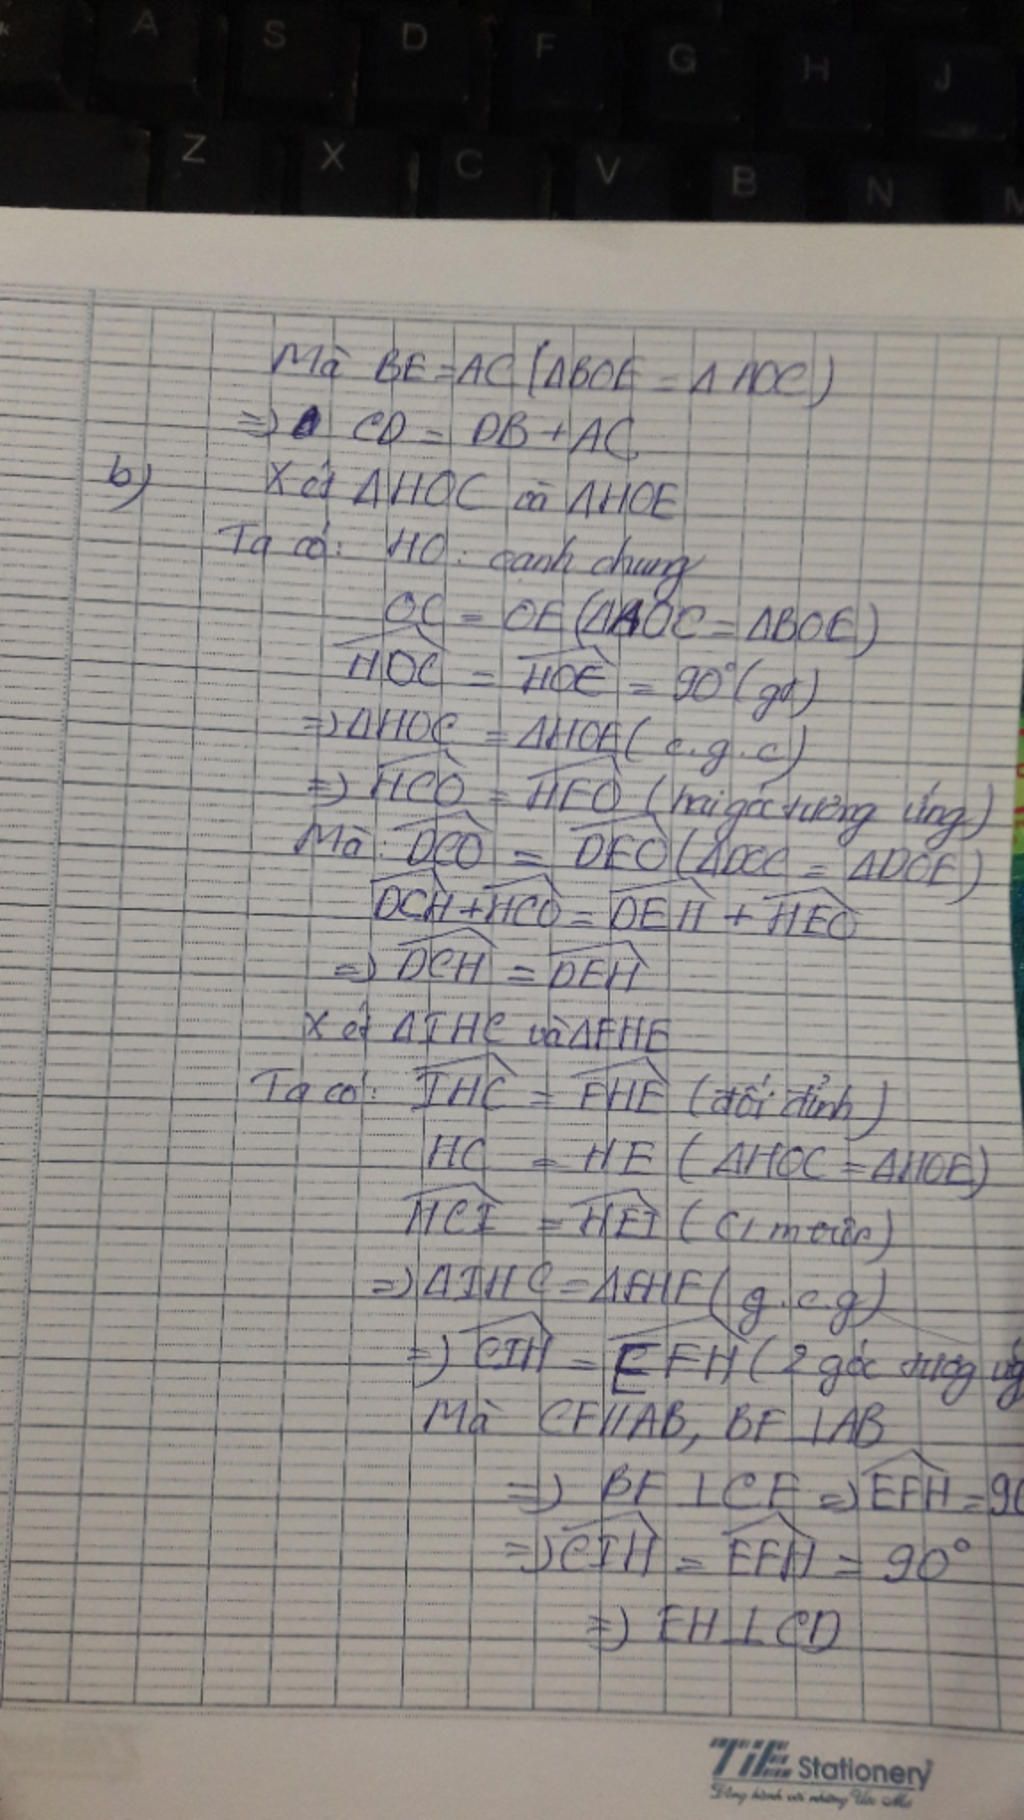 A S D F G H J
Z X C V B N M
Mà BE = AC (ΔBOE = ΔAOC)
=> CD = DB + AC
b) Xét ΔHOC và ΔHOE
Ta có: HO: cạnh chung
OC = OE (ΔAOC = ΔBOE)
HOC = HOE = 90° (gt)
=> ΔHOC = ΔHOE (c.g.c)
=> HCO = HEO (hai góc tương ứng)
Mà: DCO = DEO (ΔDOC = ΔDOE)
DCH + HCO = DEH + HEO
=> DCH = DEH
Xét ΔIHC và ΔFHE
Ta có: IHC = FHE (đối đỉnh)
HC = HE (ΔHOC = ΔHOE)
HCI = HEI (C/m trên)
=> ΔIHC = ΔFHE (g.c.g)
=> CIH = EFH (2 góc tương ứg
Mà CF//AB, BF ⊥ AB
=> BF ⊥ CF => EFH = 90
=> CIH = EFH = 90°
=> EH ⊥ CD
TiE Stationery
Đồng hành với những Ước Mơ